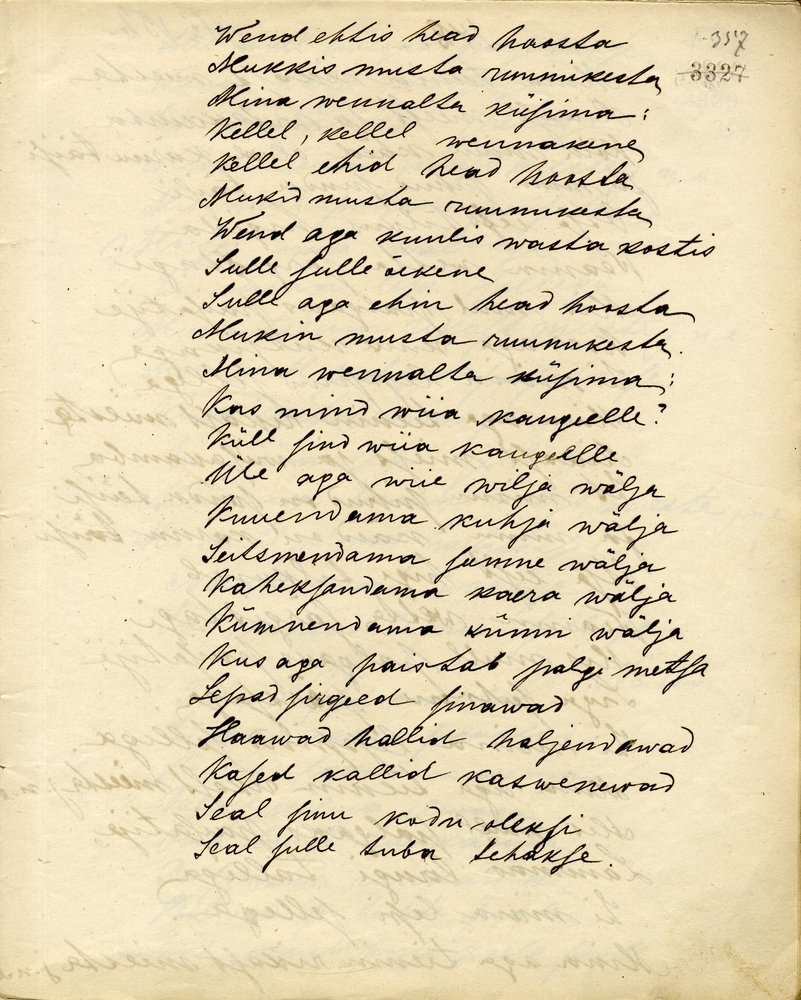 357
3327
Wend ehtis head hoosta
Mukkis musta ruunukesta
Mina wennalta küsima:
Kellel, kellel wennakene
Kellel ehid head hoosta
Mukid musta ruunukesta
Wend aga kuulis wasta kostis
Sulle sulle õekene
Sulle aga ehin head hoosta
Mukin musta ruunukesta.
Mina wennalta küsima:
Kas mind wiia kaugeelle?
Küll sind wiia kaugeelle
Üle aga wiie wilja wälja
Kuuendama kuhja wälja
Seitsmendama somne wälja
Kaheksandama kaera wälja
Kümnendama künni wälja
Kus aga paistab palgi metsa
Lepad sirgeed sinawad
Haawad hallid haljendawad
Kased kallid kaswenewad
Seal sinu kodu oleksi
Seal sulle tuba tehakse.